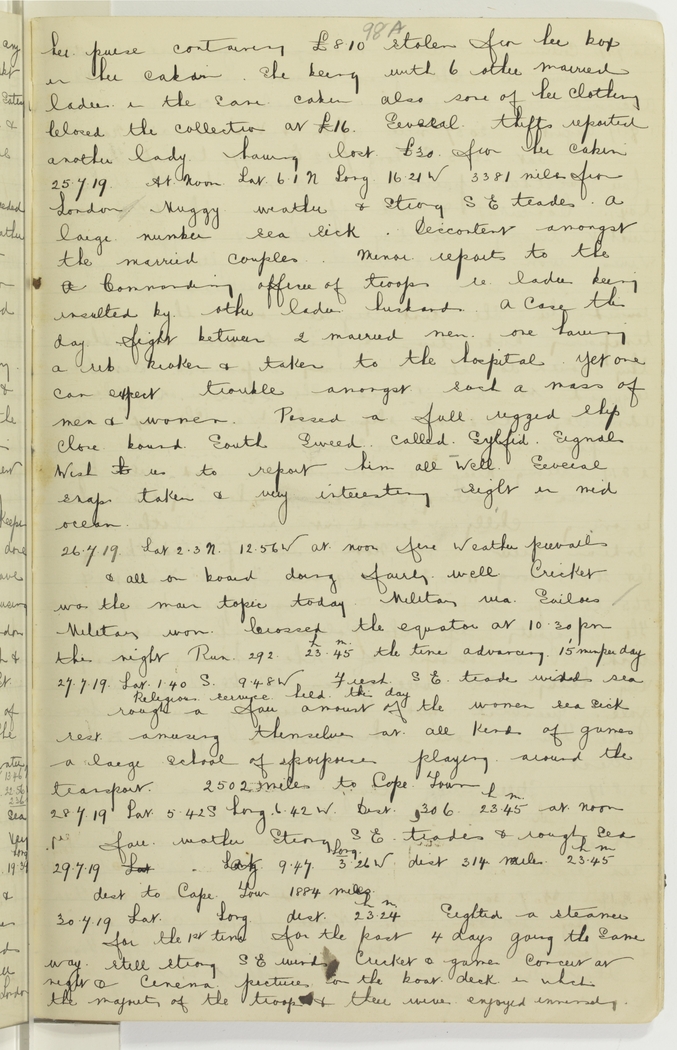 98A
her purse containing £8.10 stolen from her box
in her cabin. She being with 6 other married
ladies in the same cabin also some of her clothing
closed the collection at £16. Several thefts reported
another lady having lost £30 from her cabin
25.7.19. At Noon Lat. 6.1 N Long 16.21 W 3381 miles from
London Muggy weather & Strong S E trades. A
large number sea sick. Discontent amongst
the married couples. Minor reports to the
Commanding officer of troops re ladies being
insulted by other ladies husbands. A Case this
day fight between 2 married men. one having
a rib broken & taken to the hospital. Yet one
can expect trouble amongst such a mass of
men & women. Passed a full rigged ship
Close bound South Sweed. called. Sylfid. Signals
Wish to us to report him all Well. Several
snaps taken & very interesting sight in mid
ocean.
26.7.19 Lat 2.3 N. 12.56 W at noon fine Weather prevails
& all on board doing fairly well Cricket
was the main topic today. Military versus Sailors
Military won. Crossed the equator at 10.30 pm
this night Run. 292. 23 h. 45 m the time advancing 15 mins per day
27.7.19. Lat. 1.40 S. 9.48 W Fresh S E. trade winds sea
Religious service held this day
rough a fair amount of the women sea sick
rest amusing themselves at all Kinds of games
a large School of sporpoises playing around the
transport. 2502 miles to Cape Town
h m
28.7.19 Lat. 5.42 S Long. 6.42 W. Dist. 306. 23.45 at noon
fair weather Strong S E. trades & rough Sea
Long. h m
29.7.19 Lat 9.47. 3.26 W dist 314 miles 23.45
dist to Cape Town 1884 miles
h m
30.7.19 Lat. Long dist. 23.24 Sighted a steamer
for the 1st time for the past 4 days going the Same
way. still strong S E winds Cricket & games Concert at
night & Cinema pictures on the boat deck in which
the majority of the troops & their wives enjoyed immensely.